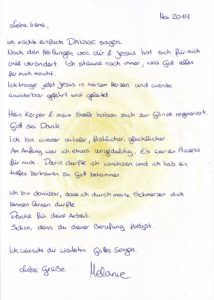 Mai 2019
Liebe Irene,
ich möchte einfach DANKE sagen.
Nach den Heilungen von dir & Jesus hat sich für mich
viel verändert. Ich staune noch immer, was Gott alles
für mich macht.
Ich trage jetzt Jesus in meinem Herzen und werde
wunderbar geführt und geleitet.
Mein Körper & meine Seele haben sich zur Gänze regeneriert.
Gott sei Dank.
Ich bin wieder aktiver, fröhlicher, glücklicher
Am Anfang war ich etwas ungeduldig. Es war ein Prozess
für mich. Darin durfte ich wachsen und ich hab ein
tiefes Vertrauen zu Gott bekommen.
Ich bin dankbar, dass ich durch meine Schmerzen dich
kennen lernen durfte.
Danke für deine Arbeit.
Schön, dass du deiner Berufung folgst.
Ich wünsche dir weiterhin Gottes Segen.
Liebe Grüße
Melanie